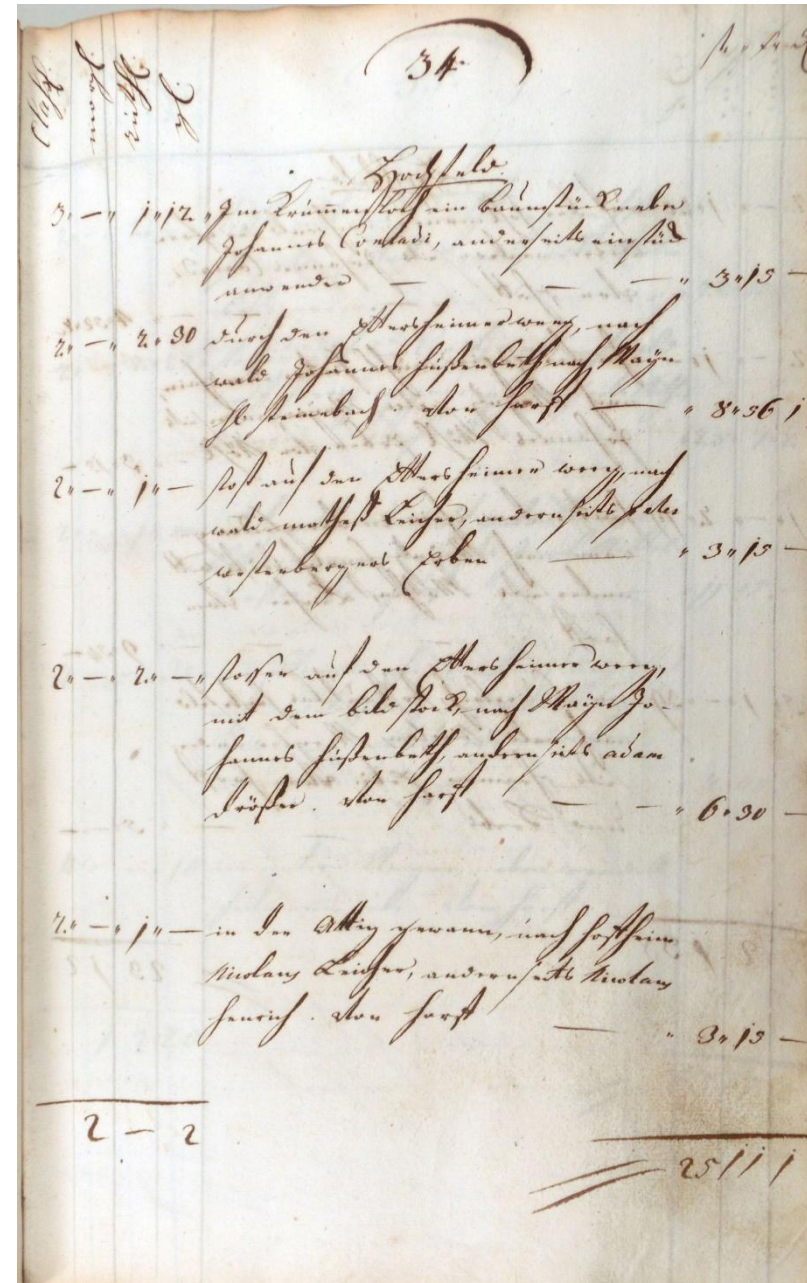 34
Hochfeld
3 „ — „ 1 „ 12 „ Im Krummenstock ein baumstück neben
Johannes Conradi, anderseits ein stück
anwender — — — „ 3 „ 15 —
2 „ — „ 2 „ 30 durch den Ettersheimer weeg, nach
wald Johannes hüßenbeth nach Mayn
steinebach. Von horst — „ 8 „ 56 1
2 „ — „ 1 „ — stost auf den Ettersheimer weeg, nach
wald matheß Leicher, andernseits peter
westenbergers Erben — „ 3 „ 15 —
2 „ — „ 2 „ — „ stosser auf den Ettersheimer weeg,
mit dem bildstock, nach Mayn Jo-
hannes hüßenbeth, andernseits adam
drößer. Von horst — — „ 6 „ 30 —
2 „ — „ 1 „ — in der Attig gewann, nach hoffheim
Nicolaus Leicher, andernseits Nicolaus
henrich. Von horst — „ 3 „ 15 —
2 — 2
25 11 1